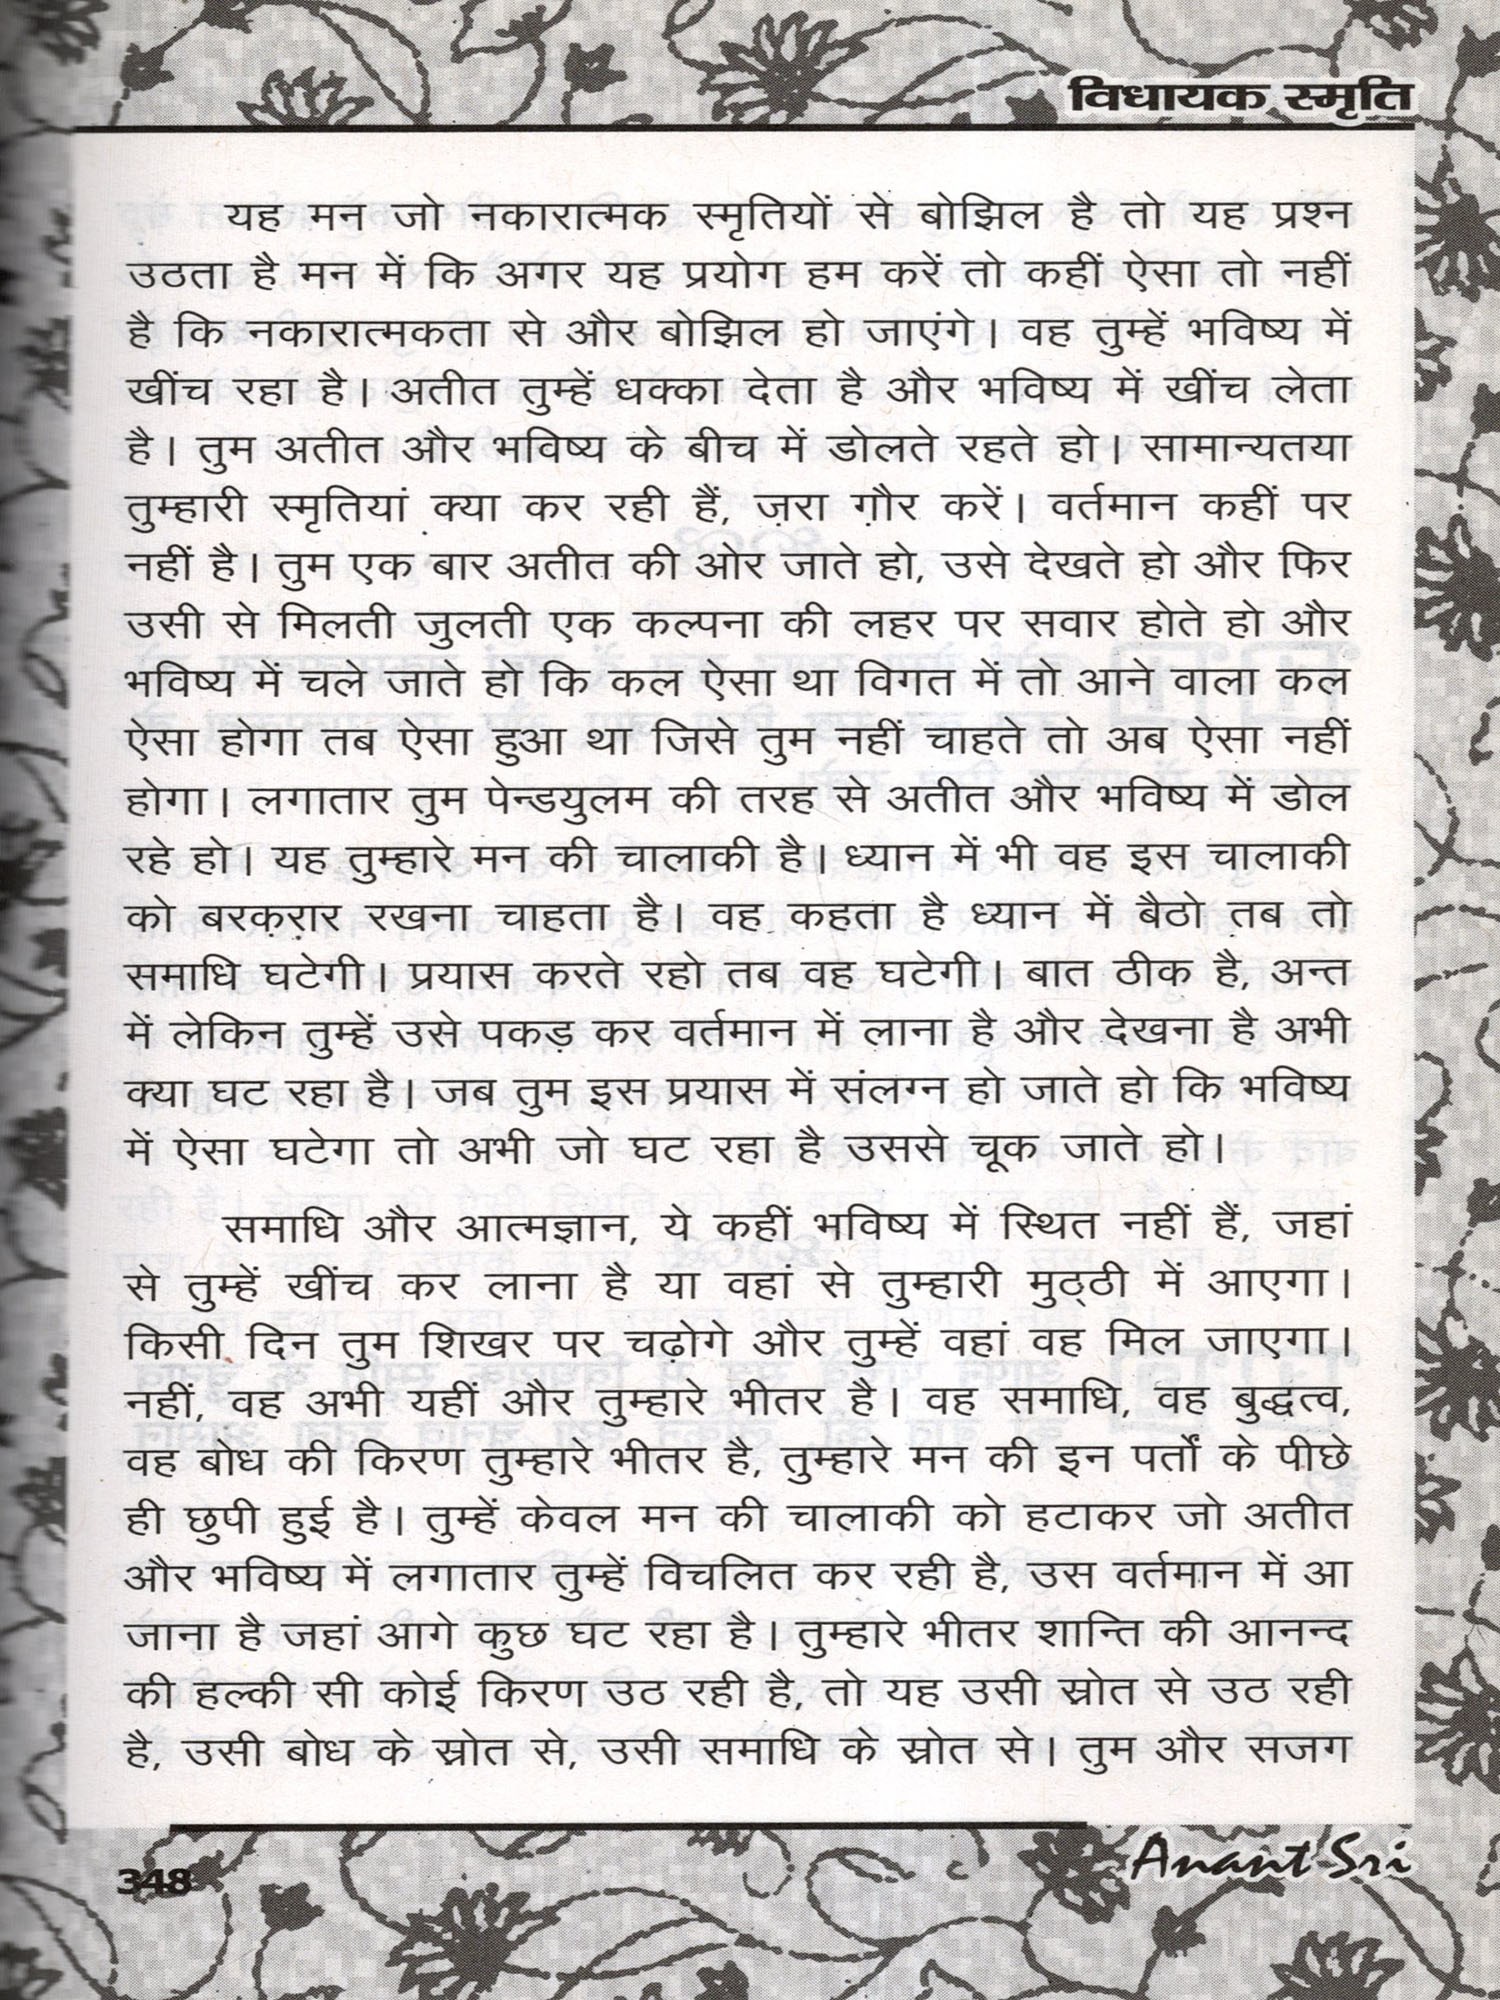 विधायक स्मृति
यह मन जो नकारात्मक स्मृतियों से बोझिल है तो यह प्रश्न
उठता है मन में कि अगर यह प्रयोग हम करें तो कहीं ऐसा तो नहीं
है कि नकारात्मकता से और बोझिल हो जाएंगे। वह तुम्हें भविष्य में
खींच रहा है। अतीत तुम्हें धक्का देता है और भविष्य में खींच लेता
है। तुम अतीत और भविष्य के बीच में डोलते रहते हो। सामान्यतया
तुम्हारी स्मृतियां क्या कर रही हैं, ज़रा ग़ौर करें। वर्तमान कहीं पर
नहीं है। तुम एक बार अतीत की ओर जाते हो, उसे देखते हो और फिर
उसी से मिलती जुलती एक कल्पना की लहर पर सवार होते हो और
भविष्य में चले जाते हो कि कल ऐसा था विगत में तो आने वाला कल
ऐसा होगा तब ऐसा हुआ था जिसे तुम नहीं चाहते तो अब ऐसा नहीं
होगा। लगातार तुम पेन्डयुलम की तरह से अतीत और भविष्य में डोल
रहे हो। यह तुम्हारे मन की चालाकी है। ध्यान में भी वह इस चालाकी
को बरक़रार रखना चाहता है। वह कहता है ध्यान में बैठो तब तो
समाधि घटेगी। प्रयास करते रहो तब वह घटेगी। बात ठीक है, अन्त
में लेकिन तुम्हें उसे पकड़ कर वर्तमान में लाना है और देखना है अभी
क्या घट रहा है। जब तुम इस प्रयास में संलग्न हो जाते हो कि भविष्य
में ऐसा घटेगा तो अभी जो घट रहा है उससे चूक जाते हो।
समाधि और आत्मज्ञान, ये कहीं भविष्य में स्थित नहीं हैं, जहां
से तुम्हें खींच कर लाना है या वहां से तुम्हारी मुठ्ठी में आएगा।
किसी दिन तुम शिखर पर चढ़ोगे और तुम्हें वहां वह मिल जाएगा।
नहीं, वह अभी यहीं और तुम्हारे भीतर है। वह समाधि, वह बुद्धत्व,
वह बोध की किरण तुम्हारे भीतर है, तुम्हारे मन की इन पर्तों के पीछे
ही छुपी हुई है। तुम्हें केवल मन की चालाकी को हटाकर जो अतीत
और भविष्य में लगातार तुम्हें विचलित कर रही है, उस वर्तमान में आ
जाना है जहां आगे कुछ घट रहा है। तुम्हारे भीतर शान्ति की आनन्द
की हल्की सी कोई किरण उठ रही है, तो यह उसी स्रोत से उठ रही
है, उसी बोध के स्रोत से, उसी समाधि के स्रोत से। तुम और सजग
Anant Sri
348